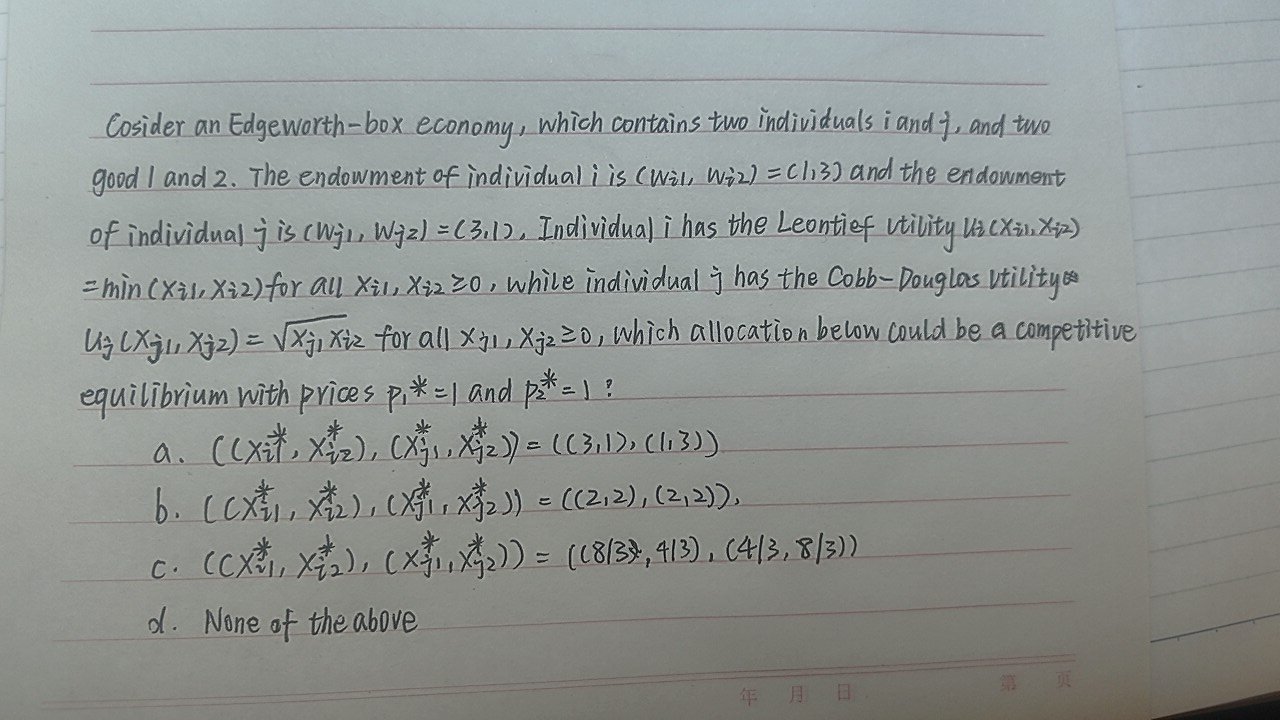 Cosider an Edgeworth-box economy, which contains two individuals i and j, and two
good 1 and 2. The endowment of individual i is (Wi1, Wi2) = (1,3) and the endowment
of individual j is (Wj1, Wj2) = (3,1), Individual i has the Leontief utility Ui (Xi1, Xi2)
= min (Xi1, Xi2) for all Xi1, Xi2 ≥0, while individual j has the Cobb-Douglas utility
Uj (Xj1, Xj2) = √Xj1 Xi2 for all Xj1, Xj2 ≥0, which allocation below could be a competitive
equilibrium with prices p1* = 1 and p2* = 1 ?
a. ((Xi1*, Xi2*), (Xj1*, Xj2*)) = ((3,1), (1,3))
b. ((Xi1*, Xi2*), (Xj1*, Xj2*)) = ((2,2), (2,2)),
c. ((Xi1*, Xi2*), (Xj1*, Xj2*)) = ((8/3, 4/3), (4/3, 8/3))
d. None of the above
年 月 日 第 页